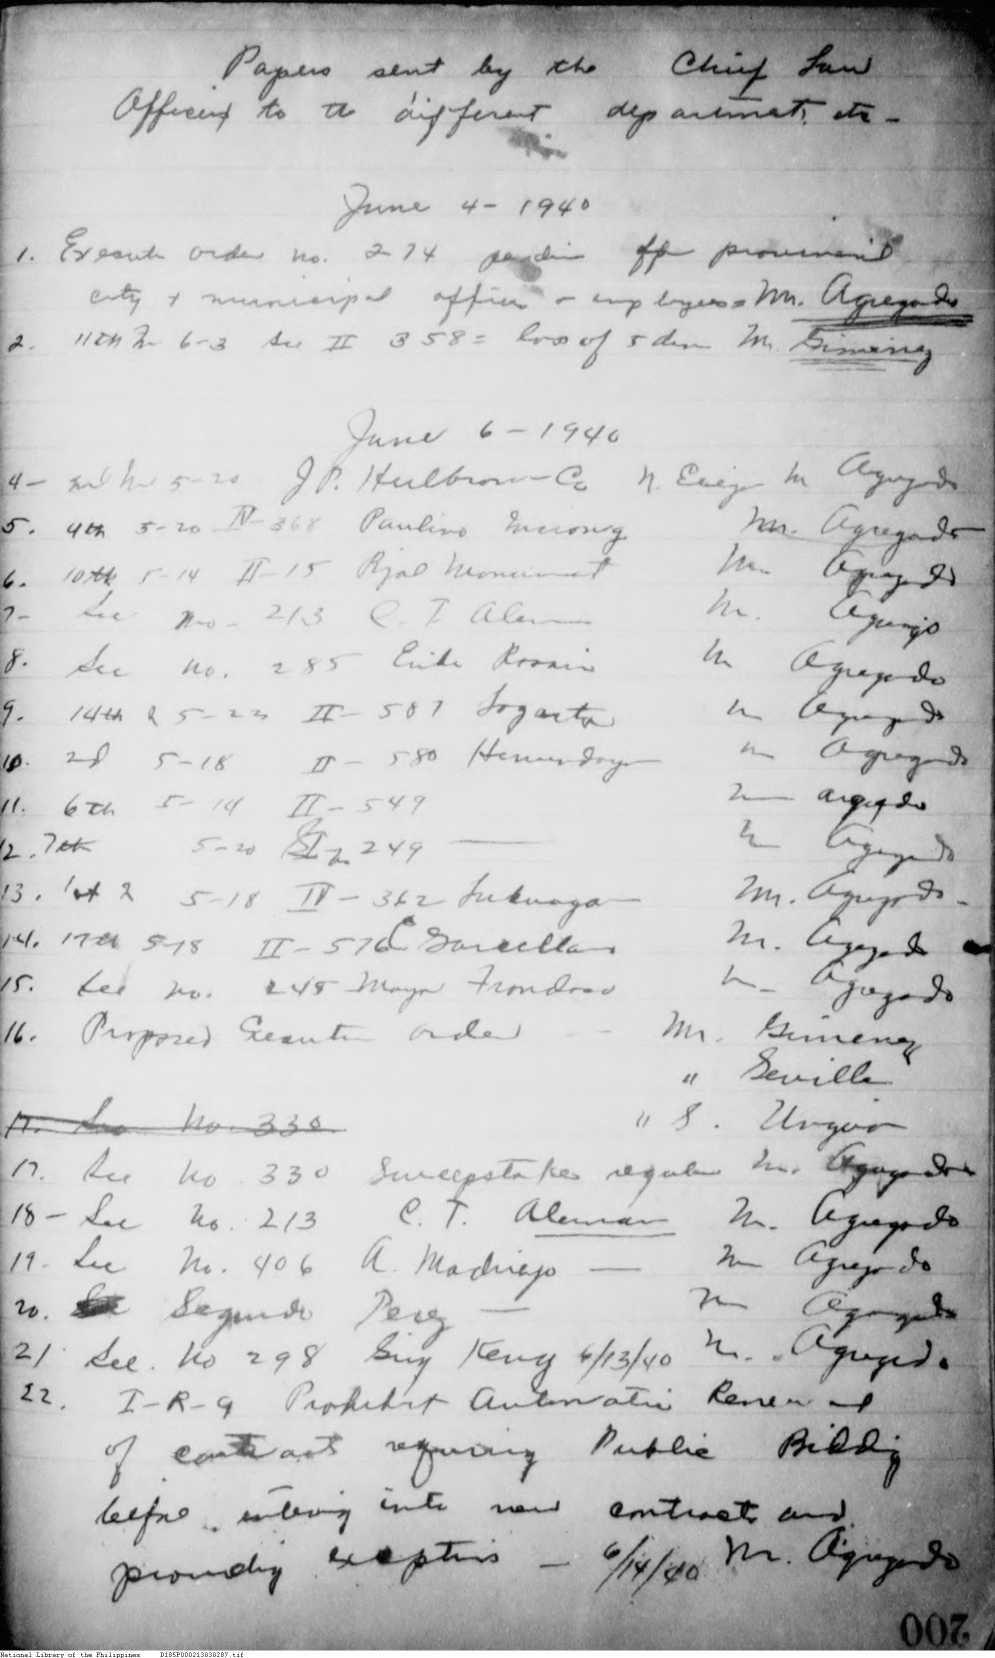 Papers sent by the Chief Law
Officer to the different departments, etc -
June 4 - 1940
1. Executive order no. 274 provincial
city & municipal officers - employees = Mr. Agregado
2. 11th 6-3 See II 358 = loss of 5 Mr. Gimenez
June 6 - 1940
4 - 5-20 J. P. Heilbronn Co N. Ecija M Agregado
5. 4th 5-20 IV-368 Paulino Mr. Agregado
6. 10th 5-14 II-15 Rizal Monument M. Agregado
7- See No. 213 C. T. Aleman M.
8. See No. 285 M Agregado
9. 14th 5-23 II - 587 M Agregado
10. 2d 5-18 II - 580 M Agregado
11. 6th 5-14 II - 549 M Agregado
12. 7th 5-20 249 — M Agregado
13. 1st 2 5-18 IV - 362 Mr. Agregado -
14. 17th 5-18 II - 576 M. Agregado
15. See No. 245 Mayor Frondoso M. Agregado
16. Proposed Executive order - Mr. Gimenez
" Sevilla
17. See No. 330 " S. Unson
17. See No. 330 Sweepstakes M. Agregado
18 - See No. 213 C. T. Aleman M. Agregado
19. See No. 406 A. Madriejo — M Agregado
20. Segundo Perez — M Agregado
21 See. No 298 Sing Keng 6/13/40 M. Agregado
22. I-R-9 Prohibit Automatic Renewal
of contracts requiring Public Bidding
before entering into new contracts and
providing exceptions - 6/14/40 Mr. Agregado
200
National Library of the Philippines D185P000213838287.tif